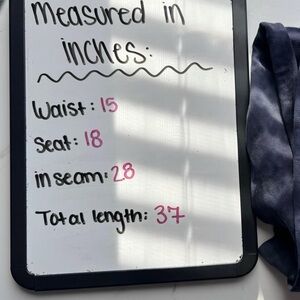 Measured in
inches:
Waist: 15
Seat: 18
inseam: 28
Total length: 37